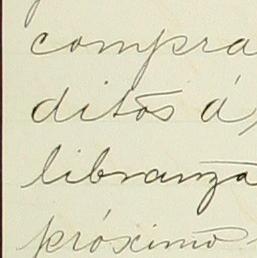 compra
ditos á
libranza
próximo